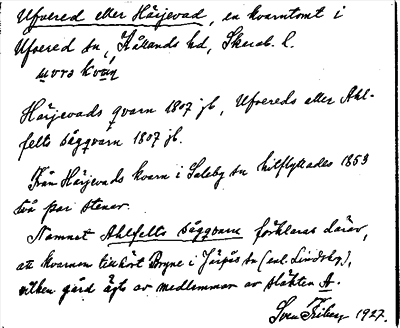 Ufvered eller Härjevad, en kvarntomt i
Ufvered sn, Kållands hd, Skarab. l.
uvrs kván
Härjevads qvarn 1807 jb, Ufvereds eller Ahl-
felts sågqvarn 1807 jb.
Från Härjevads kvarn i Saleby sn hitflyttades 1853
två par stenar.
Namnet Ahlfelts sågqvarn förklaras därav,
att kvarnen tillhört Bryne i Järpås sn (enl. Lindskog),
vilken gård ägts av medlemmar av släkten A.
Sven 1927.